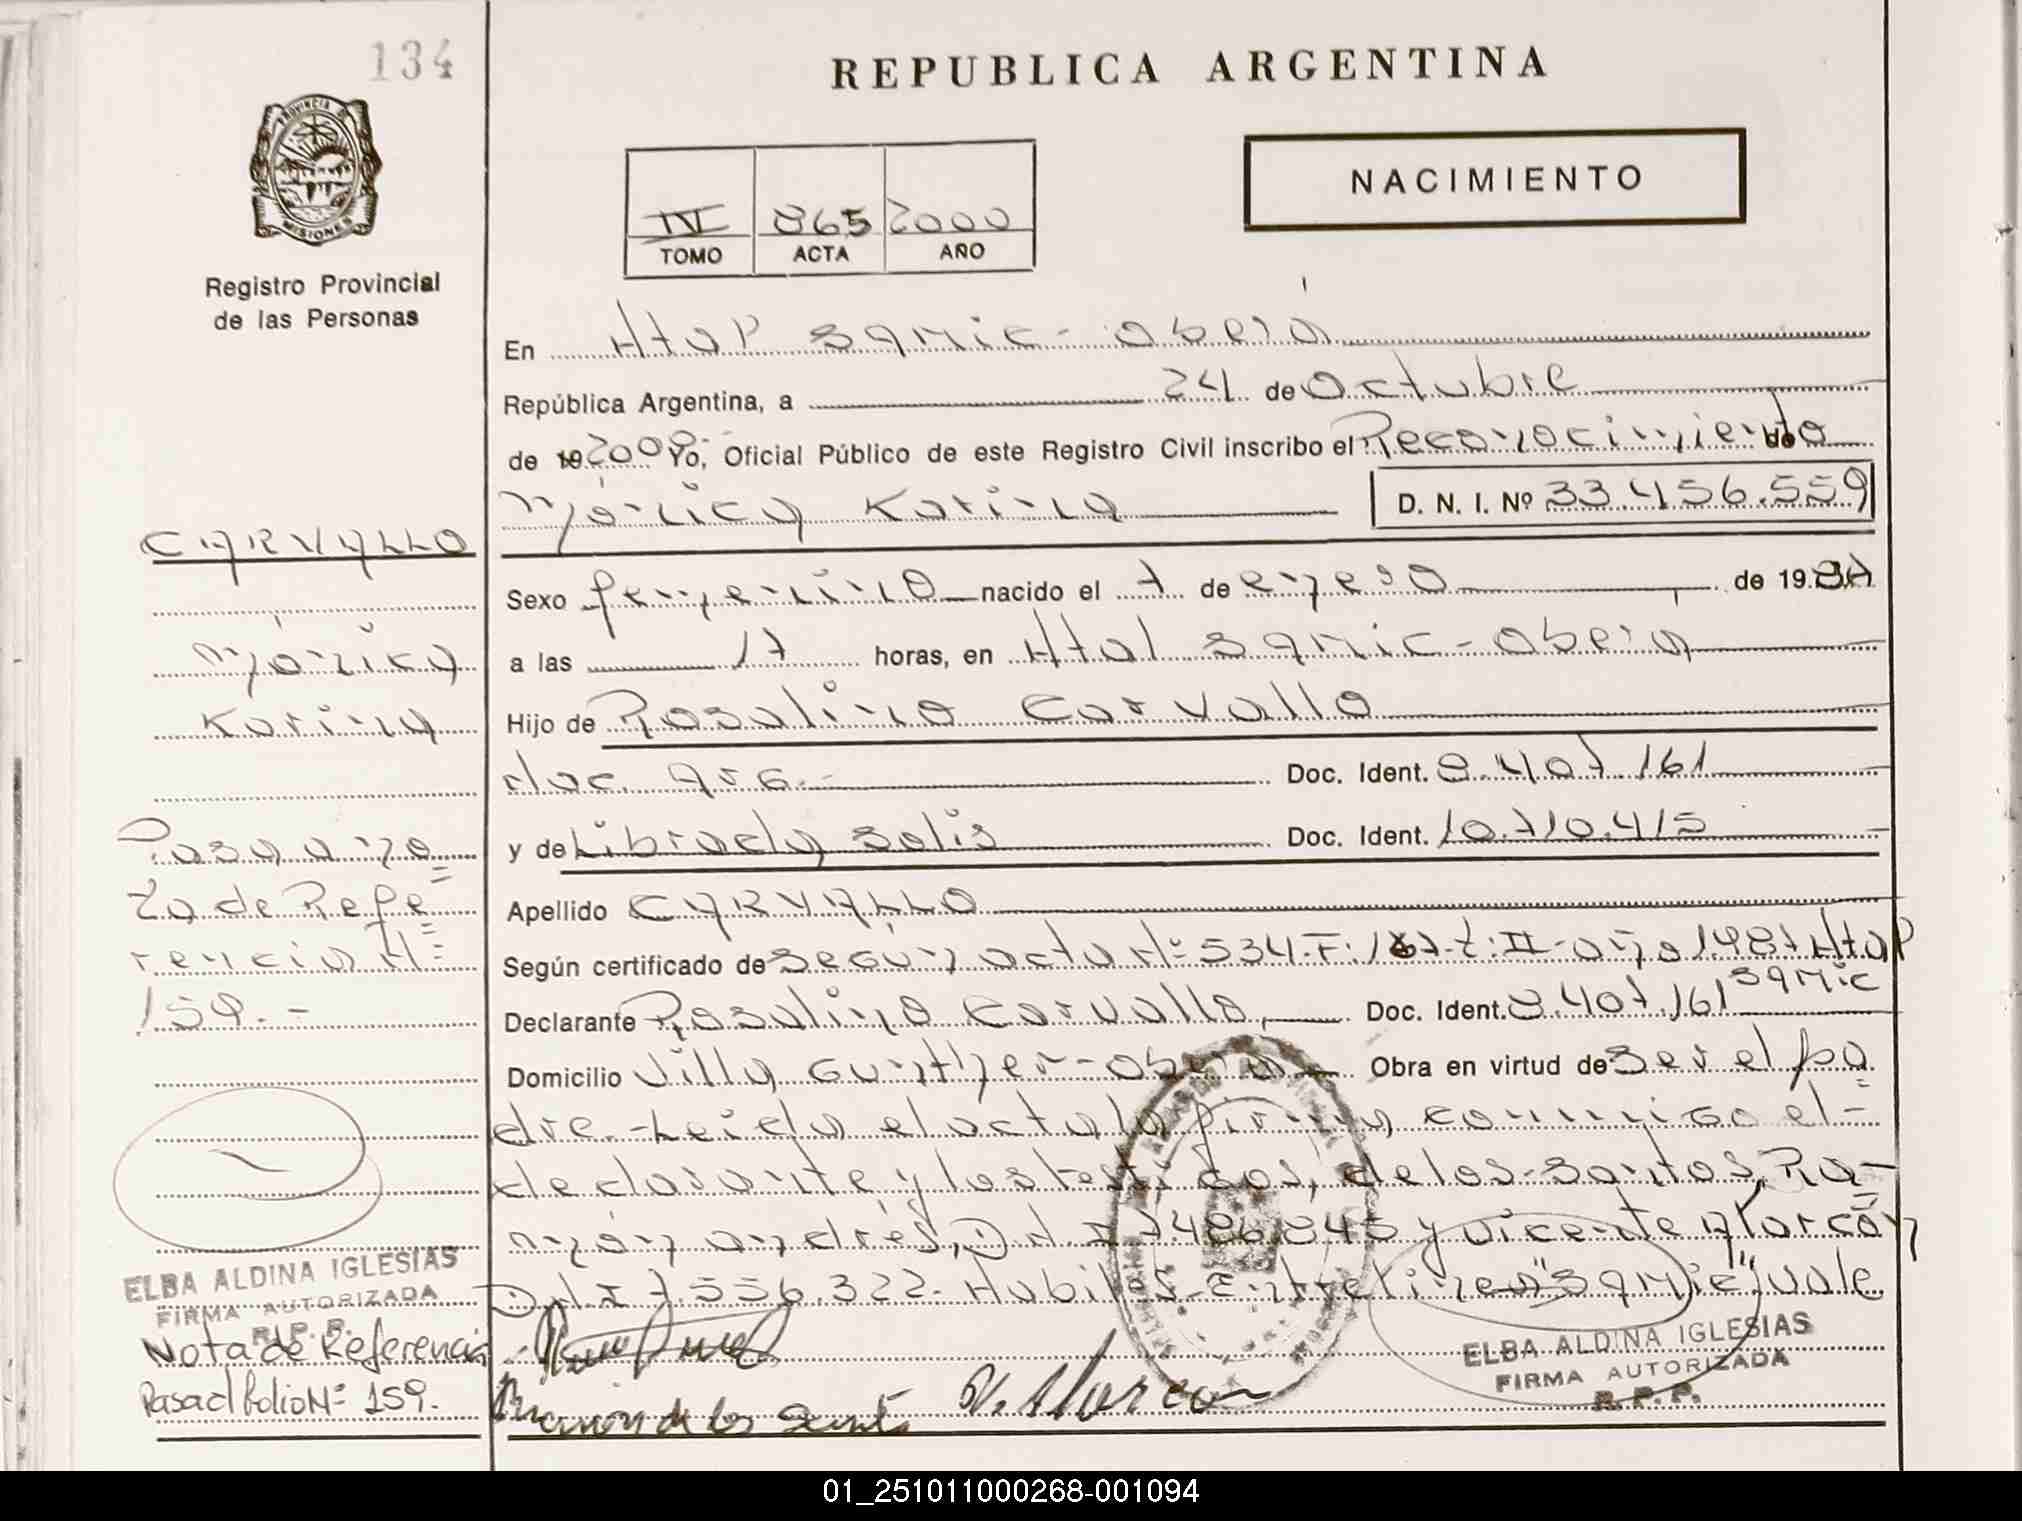 134
REPUBLICA ARGENTINA
NACIMIENTO
IV 865 2000
TOMO ACTA AÑO
PROVINCIA DE
MISIONES
Registro Provincial
de las Personas
En Htal Samic - Oberá
República Argentina, a 24 de Octubre
de 19 2000. Yo, Oficial Público de este Registro Civil inscribo el Reconocimiento de
Mónica Karina D. N. I. Nº 33.456.559
CARVALLO
Sexo femenino nacido el 7 de enero de 19.87
Mónica
a las 17 horas, en Htal Samic - Oberá
Karina
Hijo de Rosalino Carvallo
Nac. Arg.- Doc. Ident. 8.407.161
Pasa a no=
y de Librada Solis Doc. Ident. 10.710.415
ta de Refe=
Apellido CARVALLO
rencia Nº
Según certificado de según acta Nº 534-F:167-t:II-año 1987 Htal
Samic
159.-
Declarante Rosalino Carvallo, Doc. Ident. 8.407.161
Domicilio Villa Gunther - Oberá Obra en virtud de ser el pa=
dre.-Leida el acta la firma conmigo el-
declarante y los testigos, de los Santos, Ra-
món Andrés, D.N.I 7.486.845 y Vicente Alarcón
D.N.I 7.556.322. Habiles-Entrelinea "Samic", vale
ELBA ALDINA IGLESIAS
FIRMA AUTORIZADA
R. P. P.
Nota de Referencia
Pasa al folio Nº 159.
Ramón de los Santos
V. Alarcon
ELBA ALDINA IGLESIAS
FIRMA AUTORIZADA
R. P. P.
01_251011000268-001094